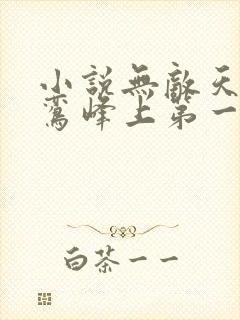 小說無敵天
鸞峰上第一
白茶一一